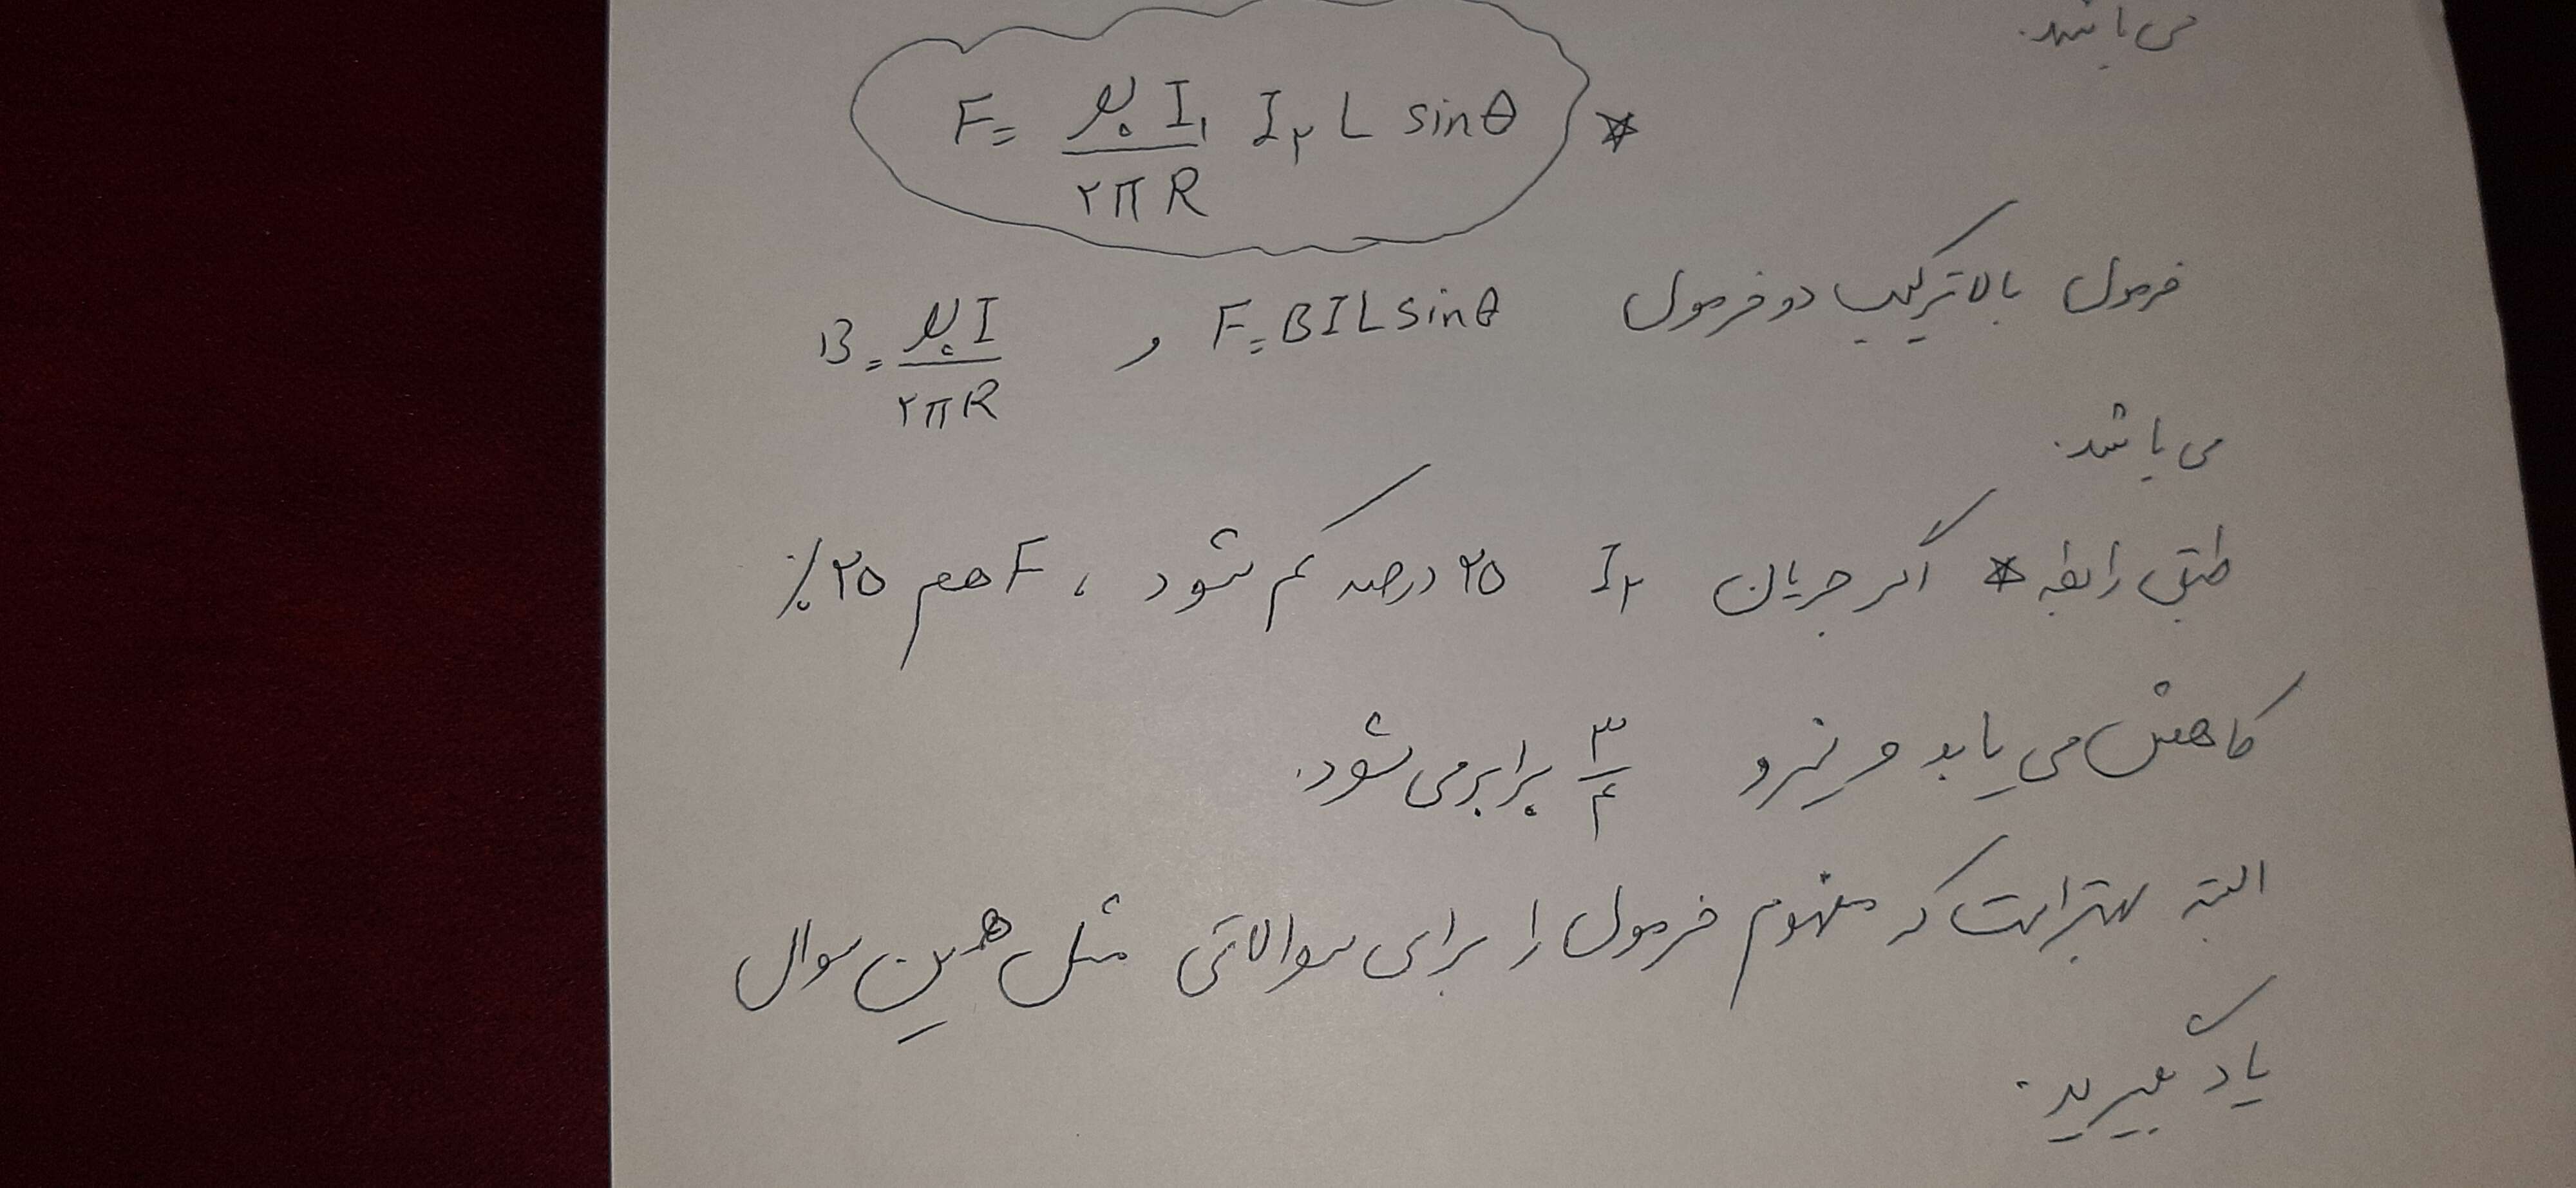 می باشد.
F = μ₀ I₁ / ۲πR I₂ L sinθ *
فرمول بالا ترکیب دو فرمول F = BILsinθ و B = μ₀I / ۲πR
می باشد.
طبق رابطه * اگر جریان I₂ ۲۵ درصد کم شود ، F هم ۲۵٪
کاهش می یابد و نیرو ۳/۴ برابر می شود.
البته بهتر است که مفهوم فرمول را برای سوالاتی مثل همین سوال
یاد بگیرید.